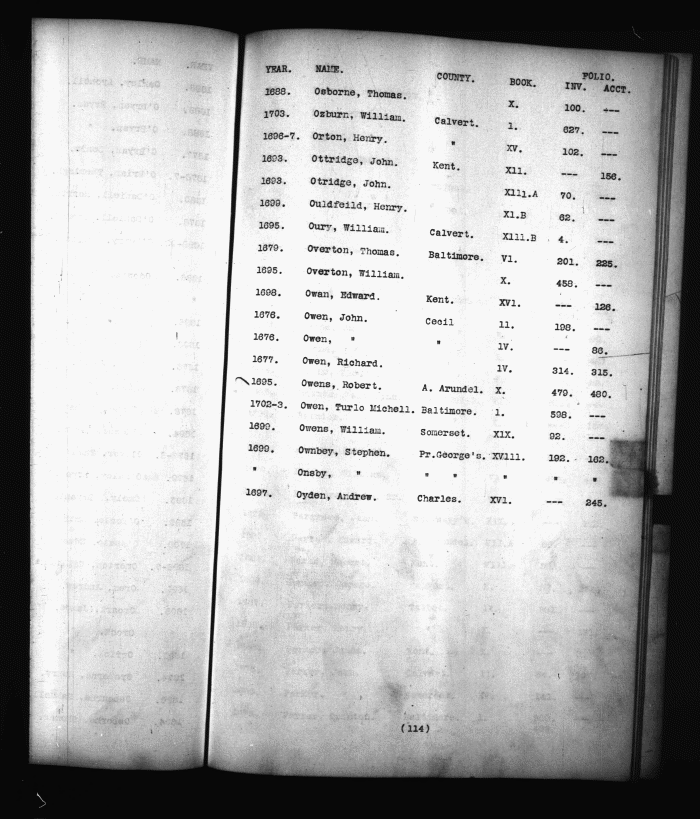 YEAR. NAME. COUNTY. BOOK. FOLIO.
INV. ACCT.
1688. Osborne, Thomas. X. 100. ---
1703. Ozburn, William. Calvert. 1. 627. ---
1696-7. Orton, Henry. " XV. 102. ---
1693. Ottridge, John. Kent. X11. --- 156.
1693. Otridge, John. X111.A 70. ---
1699. Ouldfeild, Henry. X1.B 62. ---
1695. Oury, William. Calvert. X111.B 4. ---
1679. Overton, Thomas. Baltimore. V1. 201. 225.
1695. Overton, William. X. 458. ---
1698. Owan, Edward. Kent. XV1. --- 126.
1676. Owen, John. Cecil 11. 198. ---
1676. Owen, " " 1V. --- 86.
1677. Owen, Richard. 1V. 314. 315.
1695. Owens, Robert. A. Arundel. X. 479. 480.
1702-3. Owen, Turlo Michell. Baltimore. 1. 598. ---
1699. Owens, William. Somerset. X1X. 92. ---
1699. Ownbey, Stephen. Pr.George's. XV111. 192. 162.
" Onsby, " " " " " "
1697. Oyden, Andrew. Charles. XV1. --- 245.
(114)